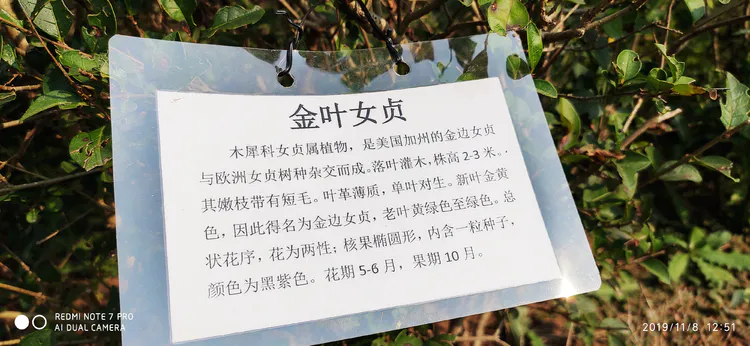 金叶女贞
木犀科女贞属植物，是美国加州的金边女贞
与欧洲女贞树种杂交而成。落叶灌木，株高2-3米。
其嫩枝带有短毛。叶革薄质，单叶对生。新叶金黄
色，因此得名为金边女贞，老叶黄绿色至绿色。总
状花序，花为两性；核果椭圆形，内含一粒种子，
颜色为黑紫色。花期5-6月，果期10月。
REDMI NOTE 7 PRO
AI DUAL CAMERA
2019/11/8 12:51